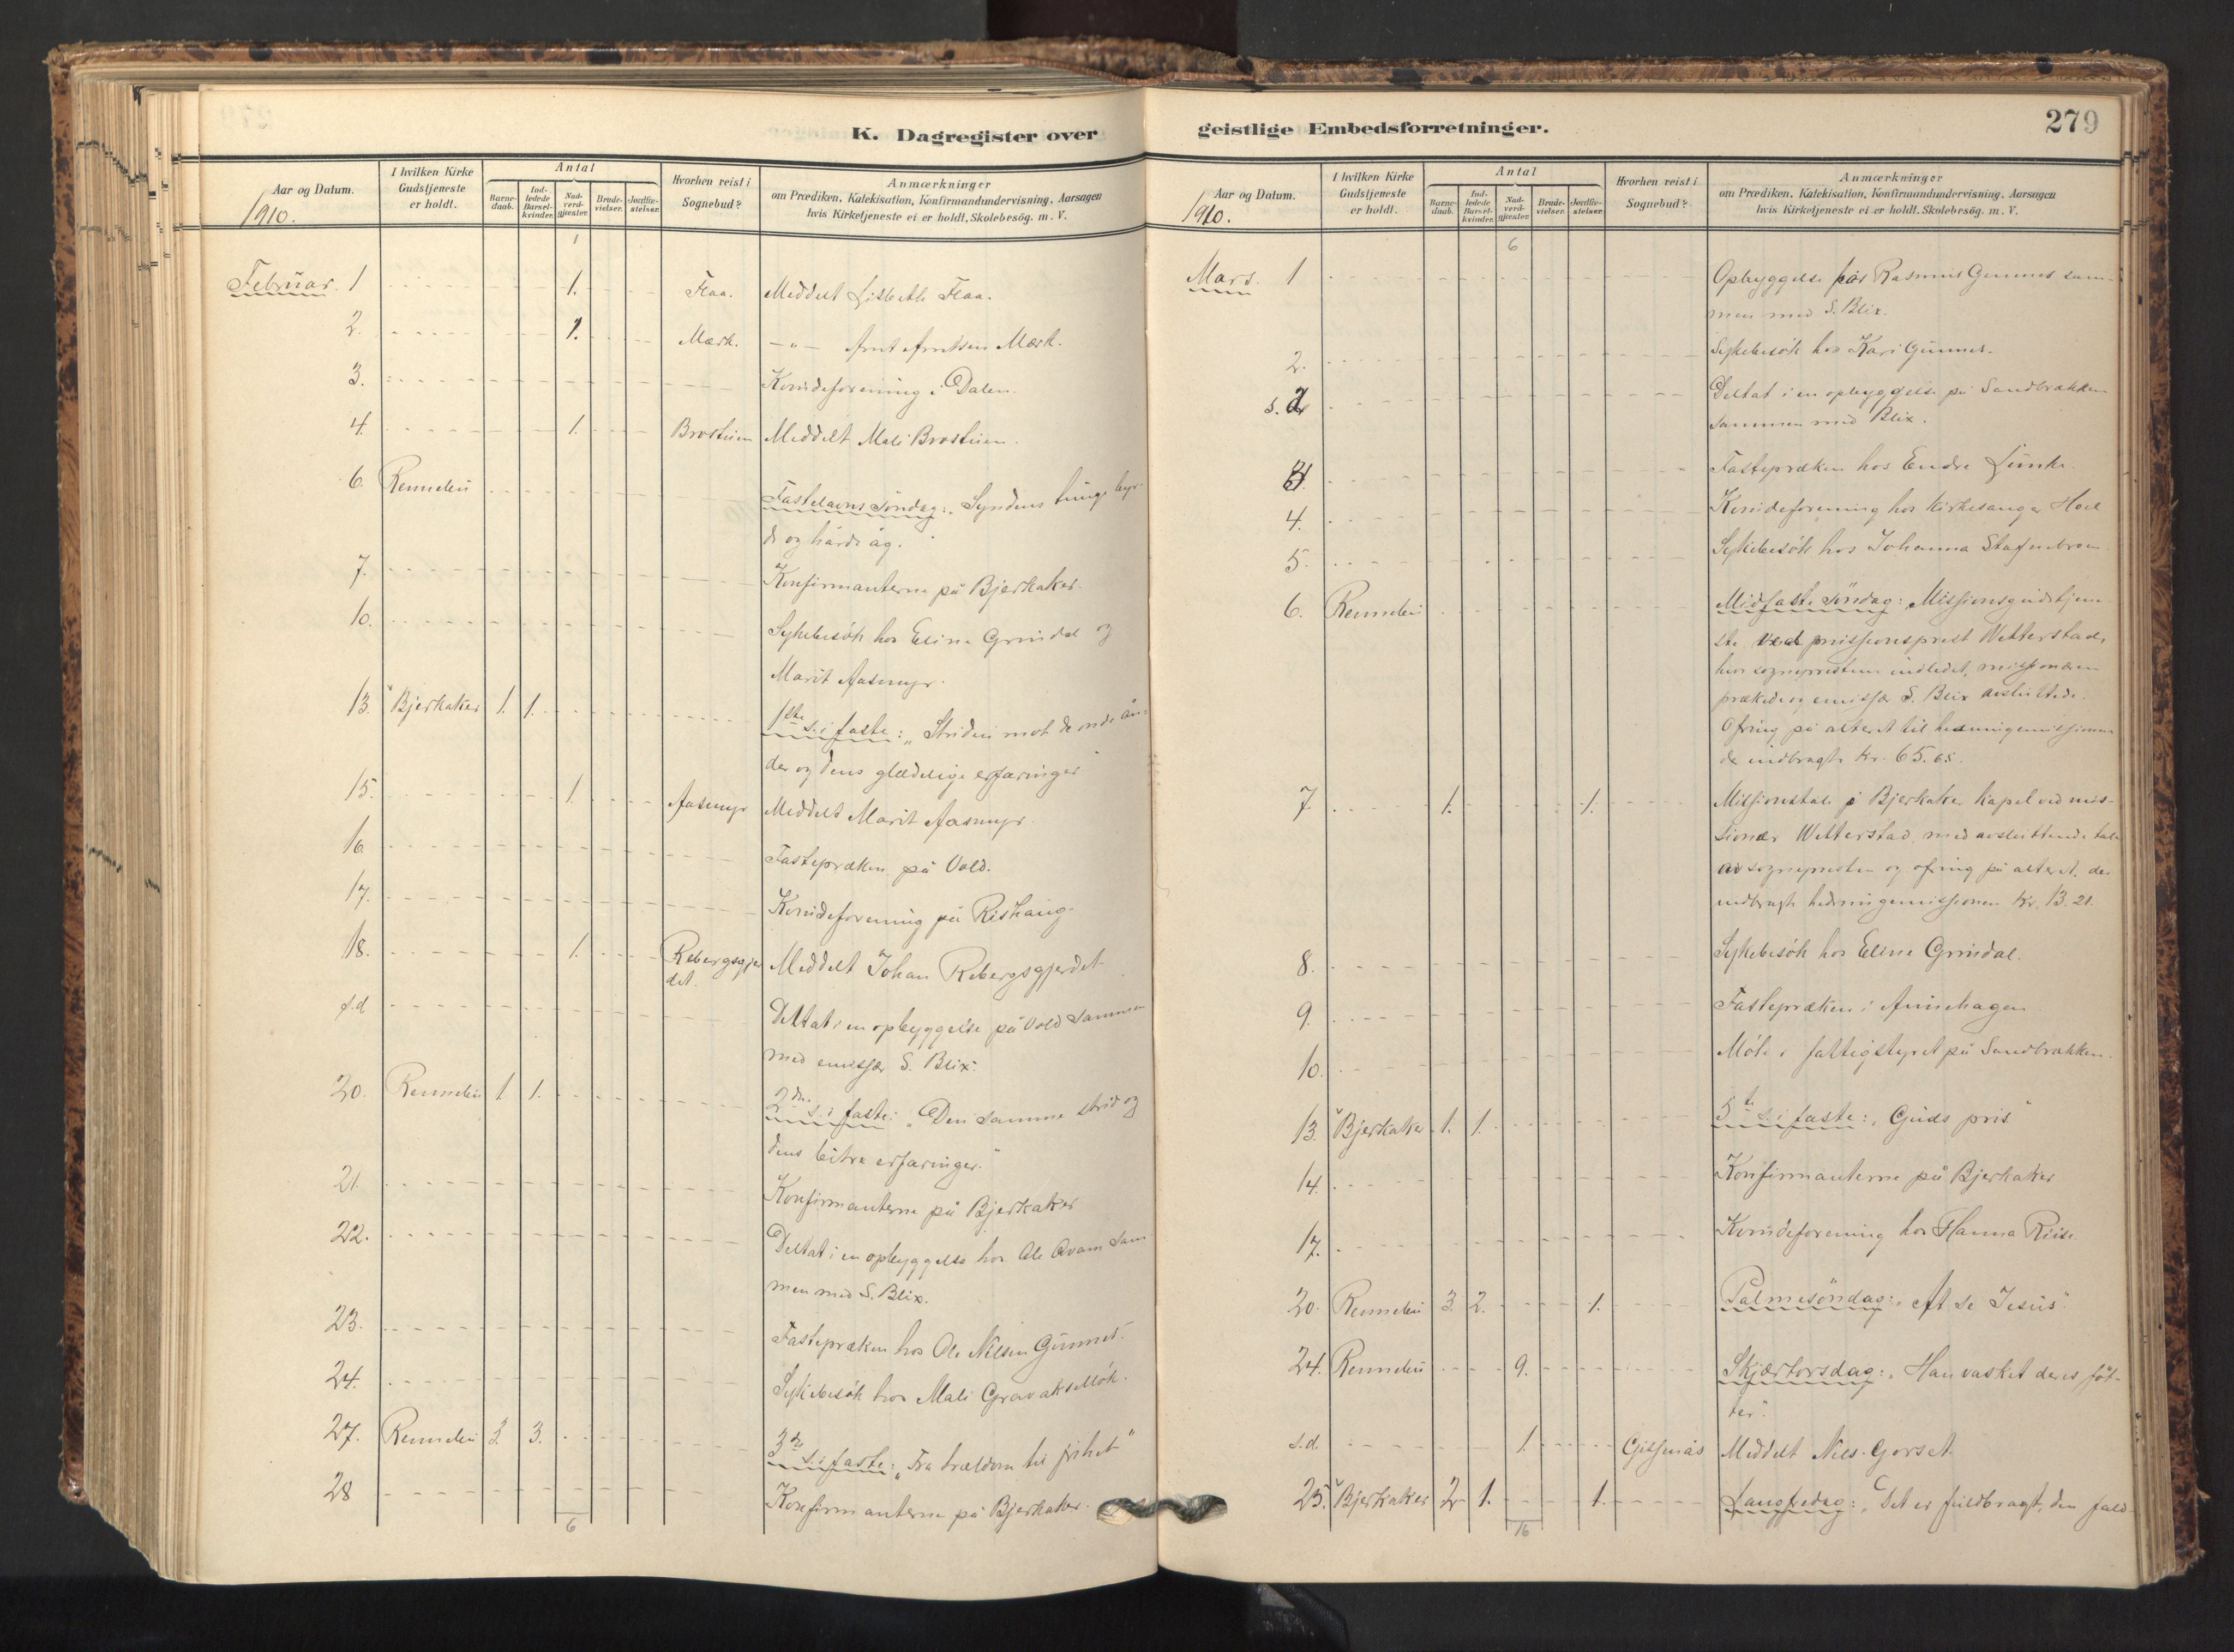 K. Dagregister over
Aar og Datum.
1910.
I hvilken Kirke Gudstjeneste er holdt.
Antal
Barne-daab.
Ind-ledede Barsel-kvinder.
Nad-verd-gjester.
Brude-vielser.
Jordfæ-stelser.
Hvorhen reist i Sognebud?
Anmærkninger
om Prædiken, Katekisation, Konfirmandundervisning, Aarsagen
hvis Kirketjeneste ei er holdt, Skolebesög. m. V.
1
Februar. 1 1. Flaa. Meddelt Lisbeth Flaa.
2. 1. Mærk. —„— Arnt Arntsen Mærk.
3. Kvindeforening i Dalen.
4. 1. Brostuen Meddelt Mali Brostuen.
6. Rennebu Fastelavns söndag: „Syndens tunge byr-
de og hårde åg."
7. Konfirmanterne på Bjerkaker.
10. Sykebesök hos Eline Grindal og
Marit Aasmyr.
13. Bjerkaker 1. 1. 1ste s. i faste: „Striden mot de onde ån-
der og dens glædelige erfaringer"
15. 1. Aasmyr Meddelt Marit Aasmyr.
16 Fastepræken på Vold.
17. Kvindeforening på Rishaug.
18. 1. Rebergsgjer
det. Meddelt Johan Rebergsgjerdet
s.d Deltat i en opbyggelse på Vold sammen
med emissær S. Blix.
20. Rennebu 1 1. 2den s. i faste: „Den samme strid og
dens bitre erfaringer."
21. Konfirmanterne på Bjerkaker
22. Deltat i en opbyggelse hos Ole Kvam sam
men med S. Blix.
23. Fastepræken hos Ole Nilsen Gunnes.
24. Sykebesök hos Mali Gravaksellök.
27. Rennebu 3. 3. 3die s. i faste: „Fra trældom til frihet"
28 Konfirmanterne på Bjerkaker.
6
geistlige Embedsforretninger.
279
Aar og Datum.
1910.
I hvilken Kirke Gudstjeneste er holdt.
Antal
Barne-daab.
Ind-ledede Barsel-kvinder.
Nad-verd-gjester.
Brude-vielser.
Jordfæ-stelser.
Hvorhen reist i Sognebud?
Anmærkninger
om Prædiken, Katekisation, Konfirmandundervisning, Aarsagen
hvis Kirketjeneste ei er holdt. Skolebesög. m. V.
6
Mars. 1 Opbyggelse hos Rasmus Gunnes sam-
men med S. Blix.
2. Sykebesök hos Kari Gunnes.
s. d Deltat i en opbyggelse på Sandbrækken
sammen med Blix.
3. Fastepræken hos Endre Lunke.
4. Kvindeforening hos kirkesanger Hoel
5. Sykebesök hos Johanna Stafnebroen
6. Rennebu Midfaste söndag: Missionsgudstjene
ste ved missionsprest Wetterstad,
hvor sognepresten indledet, missionæren
prækede og emissær S. Blix avsluttede.
Ofring på alteret til hedningemissionen
de indbragte kr. 65.65.
7. 1. 1. Missionstale i Bjerkaker kapel ved mis-
sionær Wetterstad med avsluttende tale
av sognepresten og ofring på alteret, der
indbragte hedningemissionen kr. 13.21.
8. Sykebesök hos Eline Grindal.
9. Fastepræken i Amehagen
10. Möte i fattigstyret på Sandbrækken.
13. Bjerkaker 1. 1. 5te s. i faste: „Guds pris"
14. Konfirmanterne på Bjerkaker
17. Kvindeforening hos Hanna Riise.
20. Rennebu 3. 2. 1. Palmesöndag: „At se Jesus".
24. Rennebu 9. Skjærtorsdag: „Han vasket deres föt-
ter".
s.d. 1. Gisnås Meddelt Nils Gorset.
25. Bjerkaker 2 1. 1. Langfredag: „Det er fuldbragt, den fald-
16